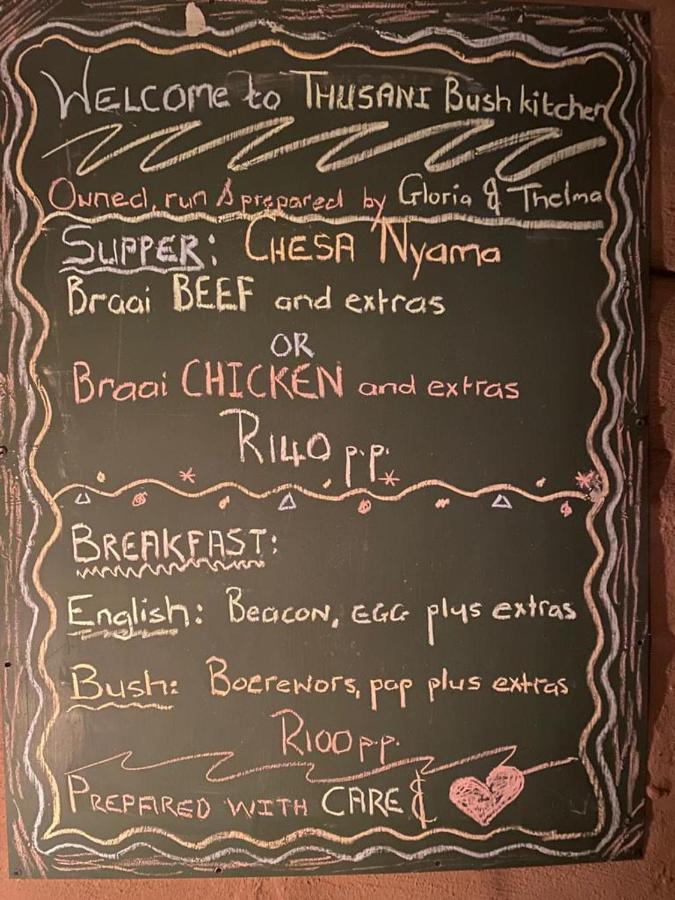 WELCOME to THUSANI Bush kitchen
Owned, run & prepared by Gloria & Thelma
SUPPER: CHESA Nyama
Braai BEEF and extras
OR
Braai CHICKEN and extras
R140 p.p.
BREAKFAST:
English: Beacon, EGG plus extras
Bush: Boerewors, pap plus extras
R100 p.p.
PREPARED WITH CARE &